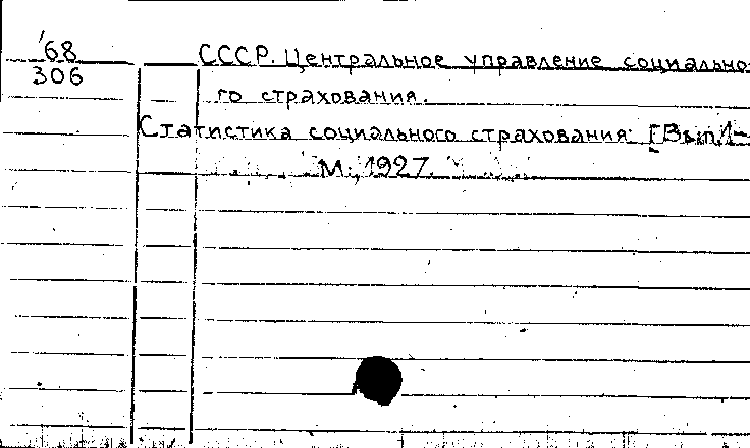 '68
306
СССР. Центральное управление социально-
го страхования.
Статистика социального страхования: [Вып. 1-
М., 1927.